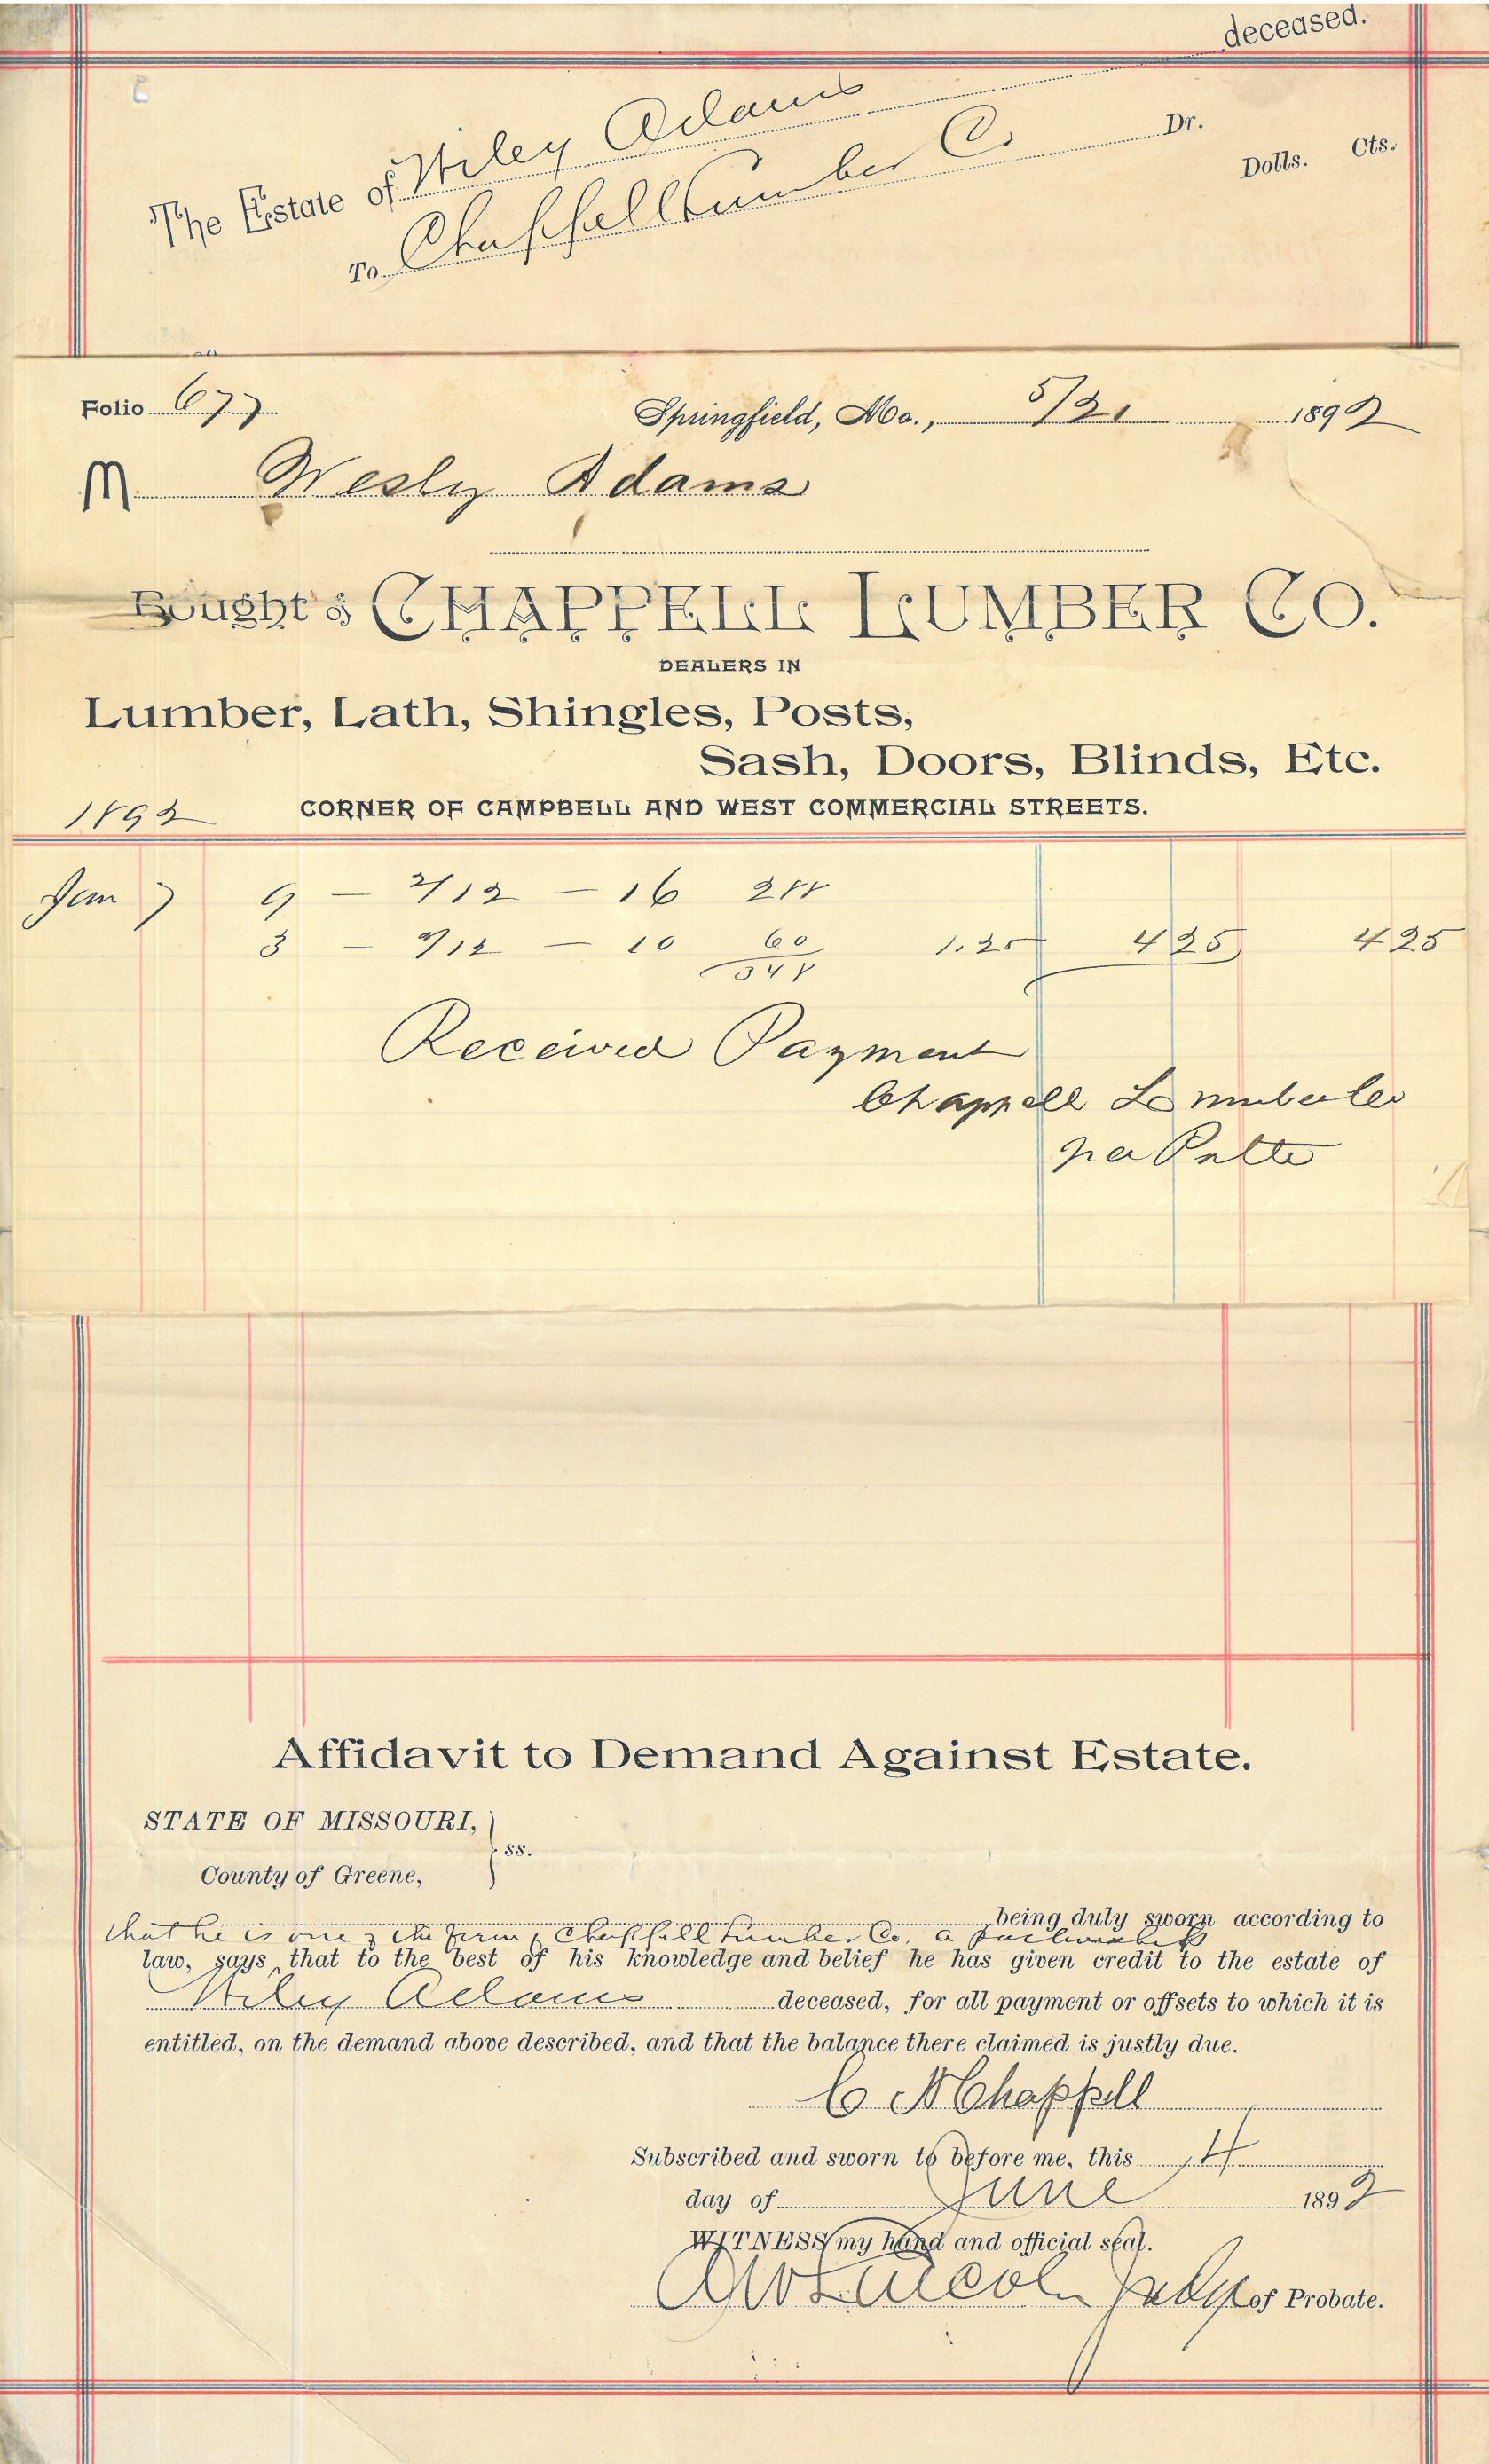 deceased.
The Estate of Wiley Adams
To Chappell Lumber Co Dr.
Dolls. Cts.
Folio 677 Springfield, Mo., 5/21 1892
M Wesly Adams
Bought of CHAPPELL LUMBER CO.
DEALERS IN
Lumber, Lath, Shingles, Posts,
Sash, Doors, Blinds, Etc.
1892 CORNER OF CAMPBELL AND WEST COMMERCIAL STREETS.
Jan 7 9 — 2/12 — 16 288
3 — 2/12 — 10 60 1.25 4 35 4 35
348
Received Payment
Chappell Lumber Co
per
Affidavit to Demand Against Estate.
STATE OF MISSOURI,
ss.
County of Greene,
being duly sworn according to
that he is one of the firm of Chappell Lumber Co. a partnership
law, says that to the best of his knowledge and belief he has given credit to the estate of
Wiley Adams deceased, for all payment or offsets to which it is
entitled, on the demand above described, and that the balance there claimed is justly due.
C N Chappell
Subscribed and sworn to before me, this 14
day of June 1892
WITNESS my hand and official seal.
Lincoln Judge of Probate.